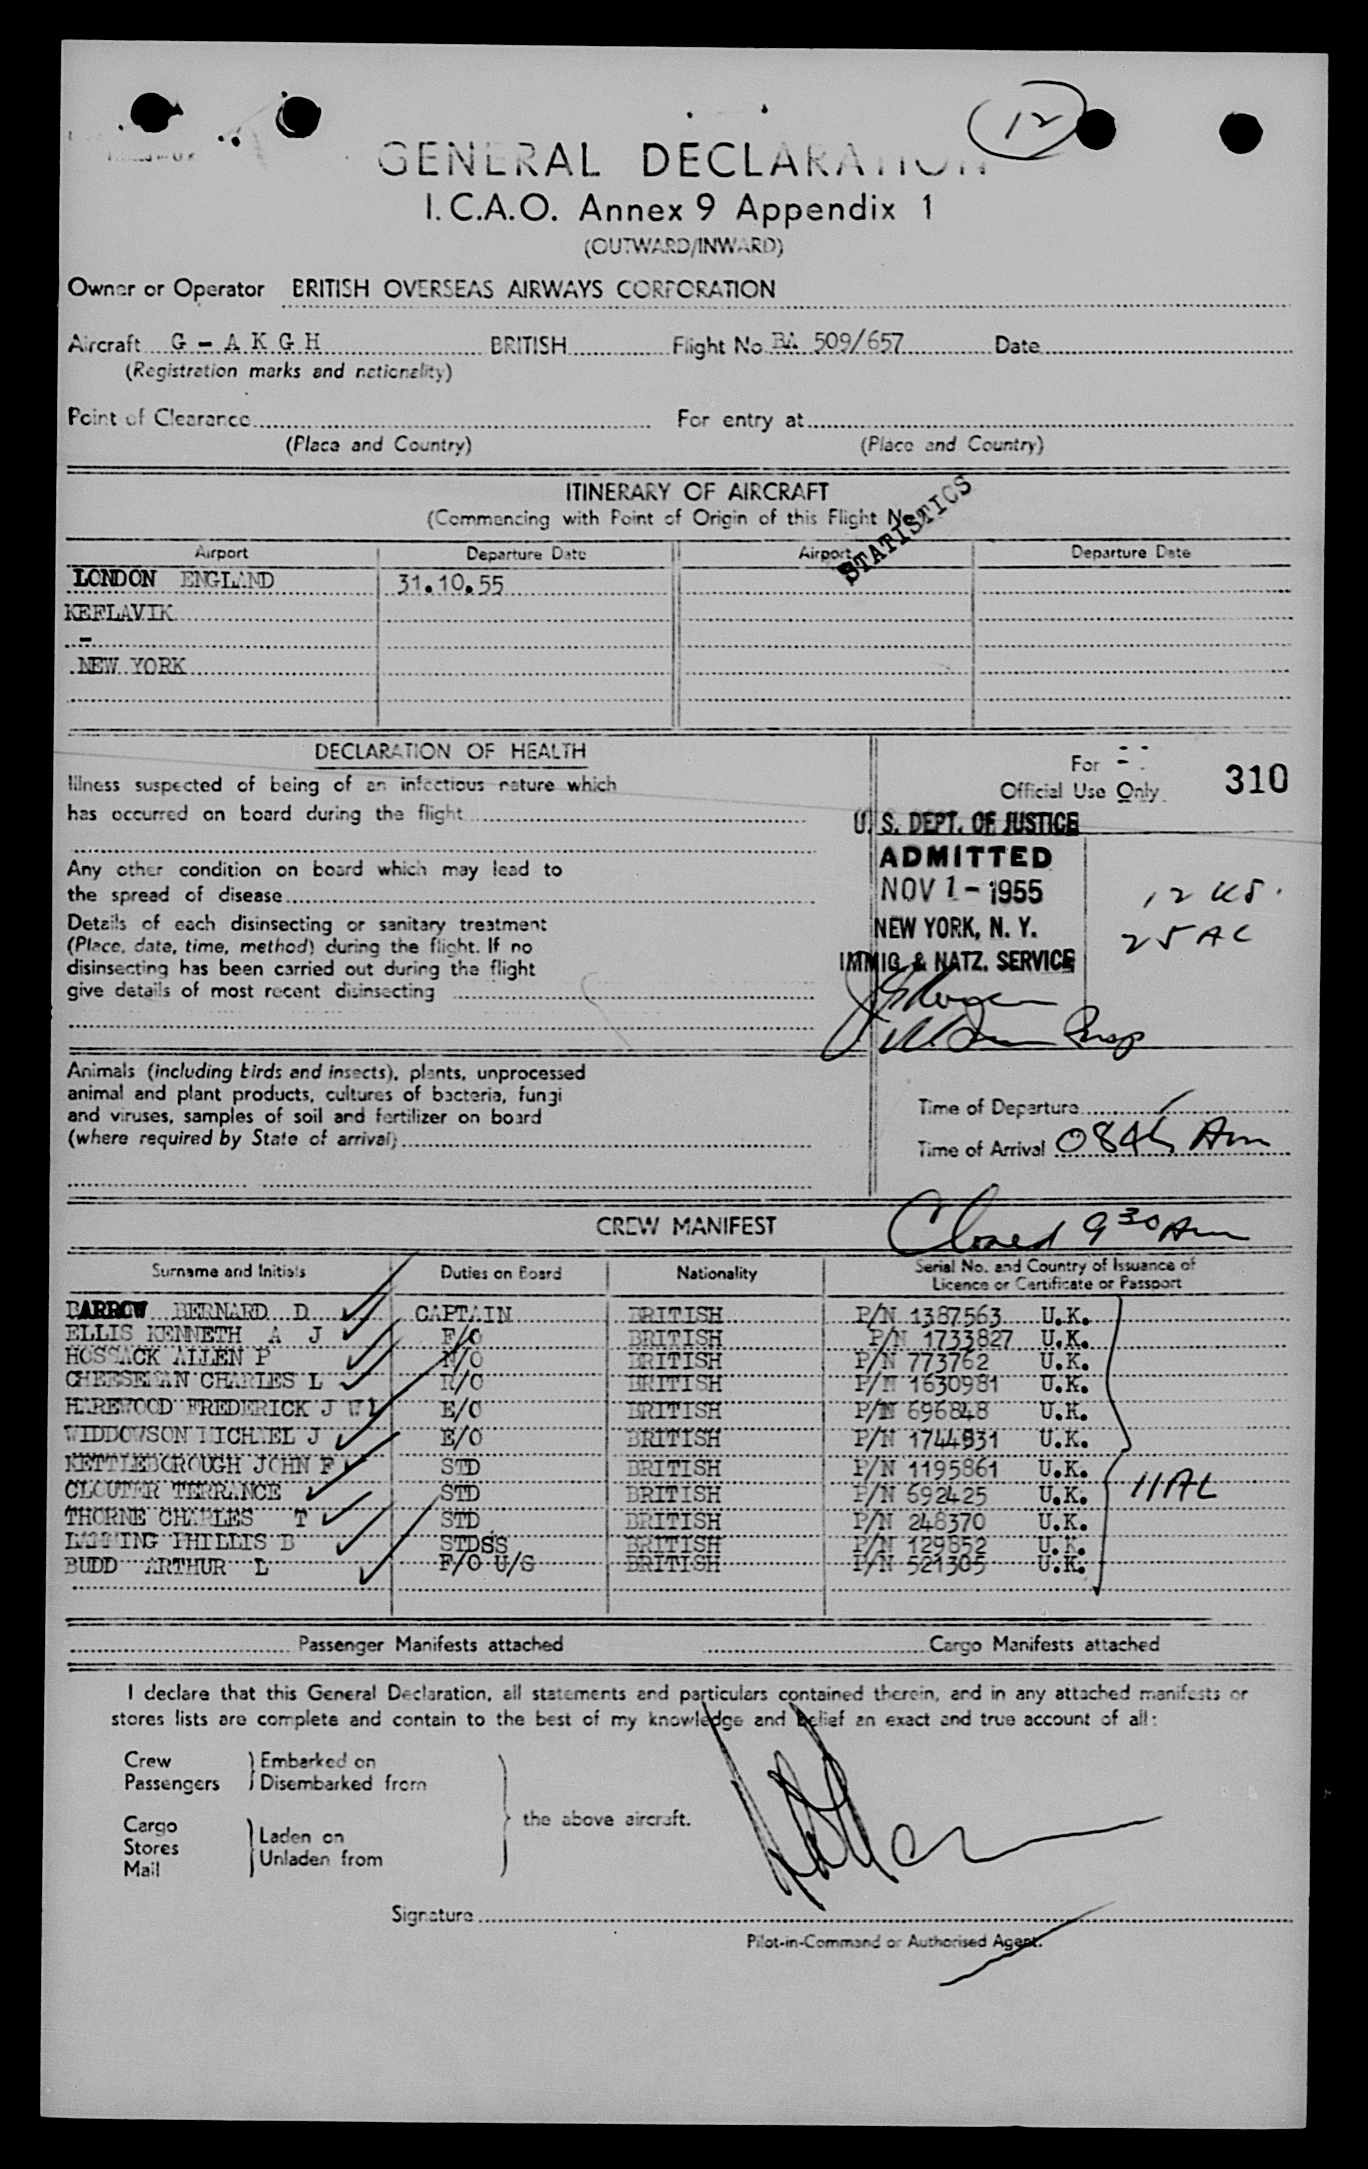 12
GENERAL DECLARATION
I.C.A.O. Annex 9 Appendix 1
(OUTWARD/INWARD)
Owner or Operator BRITISH OVERSEAS AIRWAYS CORPORATION
Aircraft G - A K G H BRITISH Flight No. BA 509/657 Date
(Registration marks and nationality)
Point of Clearance For entry at
(Place and Country) (Place and Country)
ITINERARY OF AIRCRAFT
(Commencing with Point of Origin of this Flight No.
STATISTICS
Airport Departure Date Airport Departure Date
LONDON ENGLAND 31.10.55
KEFLAVIK
-
NEW YORK
DECLARATION OF HEALTH
Illness suspected of being of an infectious nature which
has occurred on board during the flight
Any other condition on board which may lead to
the spread of disease
Details of each disinsecting or sanitary treatment
(Place, date, time, method) during the flight. If no
disinsecting has been carried out during the flight
give details of most recent disinsecting
For
Official Use Only.
310
U. S. DEPT. OF JUSTICE
ADMITTED
NOV 1 - 1955
NEW YORK, N. Y.
IMMIG. & NATZ. SERVICE
12 US.
25 AL
Insp
Animals (including birds and insects), plants, unprocessed
animal and plant products, cultures of bacteria, fungi
and viruses, samples of soil and fertilizer on board
(where required by State of arrival)
Time of Departure
Time of Arrival 0845 Am
Closed 9 30 Am
CREW MANIFEST
Surname and Initials Duties on Board Nationality Serial No. and Country of Issuance of
Licence or Certificate or Passport
BARROW BERNARD D CAPTAIN BRITISH P/N 1387563 U.K.
ELLIS KENNETH A J F/O BRITISH P/N 1733827 U.K.
HOSSACK ALLEN P N/O BRITISH P/N 773762 U.K.
CHEESEMAN CHARLES L R/O BRITISH P/N 1630981 U.K.
HAREWOOD FREDERICK J W L E/O BRITISH P/N 696848 U.K.
WIDDOWSON MICHAEL J E/O BRITISH P/N 1744931 U.K.
KETTLEBOROUGH JOHN F STD BRITISH P/N 1195861 U.K.
CLOUTER TERRANCE STD BRITISH P/N 692425 U.K.
THORNE CHARLES T STD BRITISH P/N 248370 U.K.
LAMMING PHILLIS B STDSS BRITISH P/N 129852 U.K.
BUDD ARTHUR L F/O U/S BRITISH P/N 521305 U.K.
11AL
Passenger Manifests attached Cargo Manifests attached
I declare that this General Declaration, all statements and particulars contained therein, and in any attached manifests or
stores lists are complete and contain to the best of my knowledge and belief an exact and true account of all:
Crew Embarked on
Passengers Disembarked from
the above aircraft.
Cargo
Stores Laden on
Mail Unladen from
Signature
Pilot-in-Command or Authorised Agent.